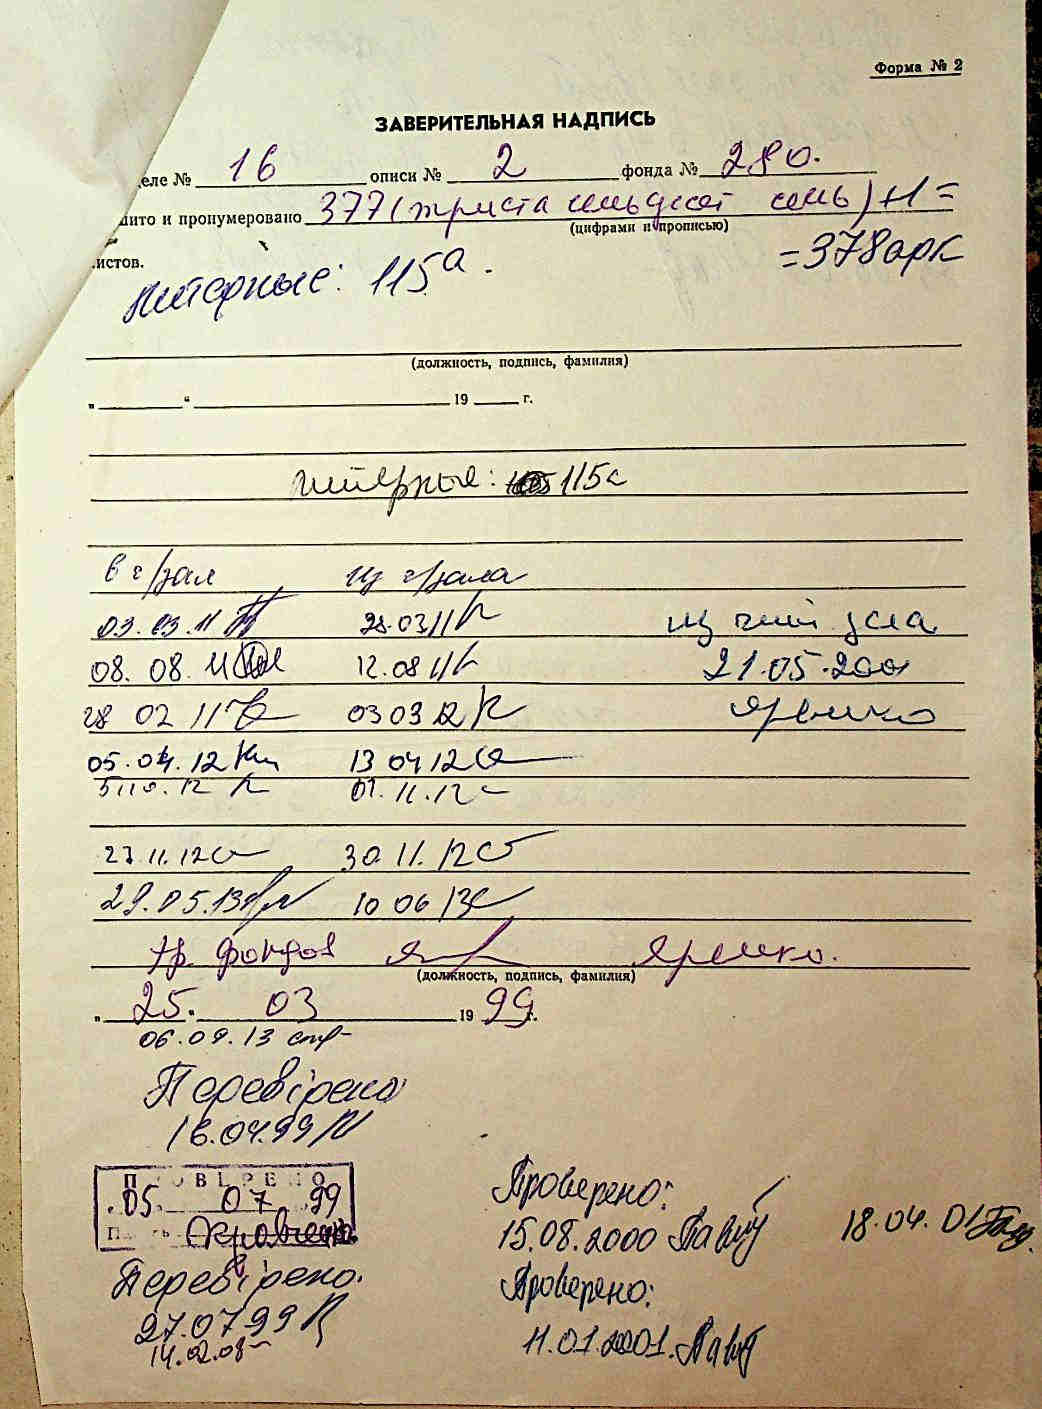 Форма № 2
ЗАВЕРИТЕЛЬНАЯ НАДПИСЬ
деле № 16 описи № 2 фонда № 280.
шито и пронумеровано 377 (триста семьдесят семь) +1 =
(цифрами и прописью)
листов. = 378 арк
Литерные: 115а.
(должность, подпись, фамилия)
„ “ 19 г.
литерные: 115а
в ч/зал из ч/зала
03.03.11 28.03 11 из чит зала
08.08.11 12.08 11 21.05.2001
28 02 11 03 03 12 Яременко
05.04.12 13 04 12
12 01.11.12
27.11.12 30.11.12
29.05.13 10 06 13
хр. фондов Яременко.
(должность, подпись, фамилия)
„ 25. 03 19 99 г.
06.09.13
Перевірено
16.04.99
ПРОВЕРЕНО
05. 07 99
Кравченко
Перевірено.
27.07.99
14.02.08
Проверено:
15.08.2000
18.04.01
Проверено:
11.01.2001.